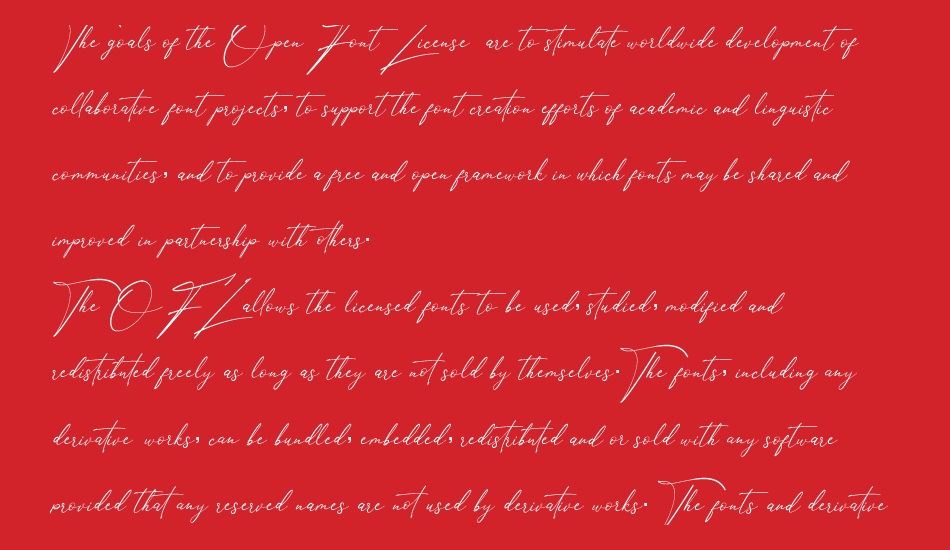 The goals of the Open Font License are to stimulate worldwide development of
collaborative font projects, to support the font creation efforts of academic and linguistic
communities, and to provide a free and open framework in which fonts may be shared and
improved in partnership with others.
The OFL allows the licensed fonts to be used, studied, modified and
redistributed freely as long as they are not sold by themselves. The fonts, including any
derivative works, can be bundled, embedded, redistributed and or sold with any software
provided that any reserved names are not used by derivative works. The fonts and derivative